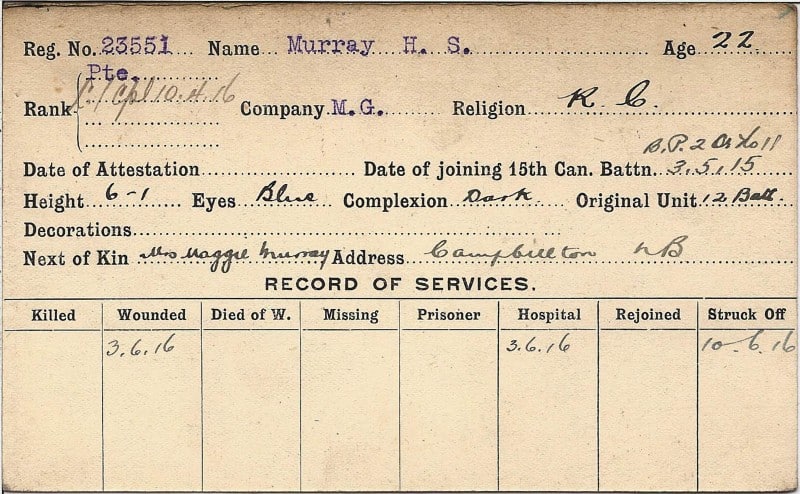 Reg. No. 23551 Name Murray H. S. Age 22
Pte.
Rank L/Cpl 10.4.16 Company M.G. Religion R. C.
B.P.2
Date of Attestation Date of joining 15th Can. Battn. 3.5.15
Height 6-1 Eyes Blue Complexion Dark Original Unit 12 Batt.
Decorations
Next of Kin Mrs Maggie Murray Address Campbillton NB
RECORD OF SERVICES.
Killed Wounded Died of W. Missing Prisoner Hospital Rejoined Struck Off
3.6.16 3.6.16 10.6.16